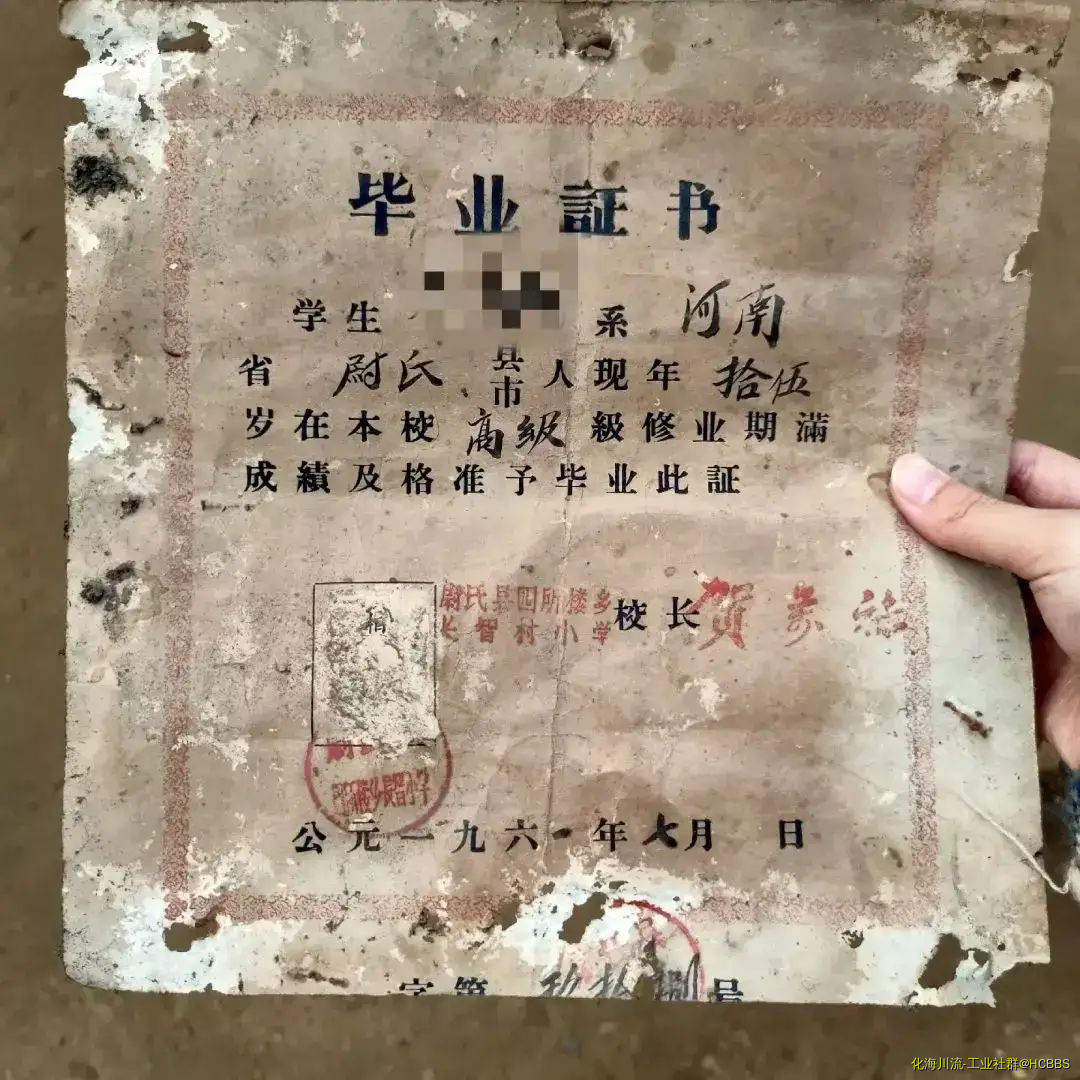 毕业証书
学生 系 河南
省 尉氏 县市 人现年 拾伍
岁在本校 高级 級修业期满
成績及格准予毕业此証
相
尉氏县四所楼乡
长智村小学
校长 贺
公元一九六一年七月 日
字第 玖拾捌 号
化海川流-工业社群@HCBBS